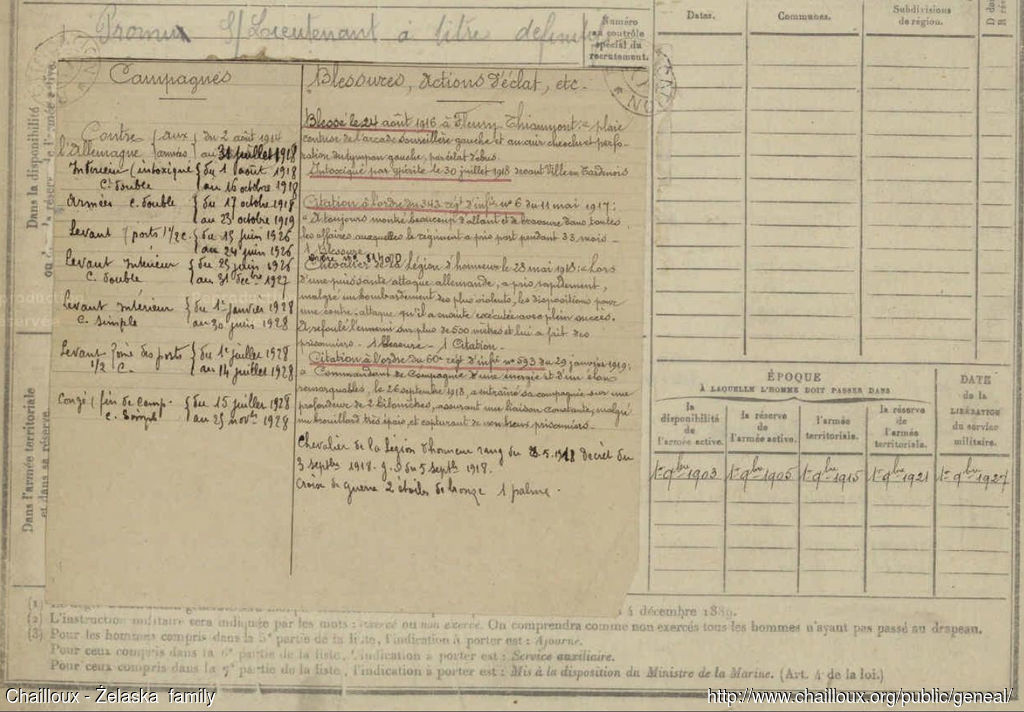 Promu S/Lieutenant à titre définitif
Numéro
au contrôle
spécial du
recrutement.
Dates.
Communes.
Subdivisions
de région.
Dans la disponibilité
Dans l'armée territoriale
et dans sa réserve.
Campagnes
Contre l'Allemagne (aux armées) { du 2 août 1914
au 31 juillet 1918
Intérieur (intoxiqué { du 1 août 1918
C. double au 16 octobre 1918
Armées C. double { du 17 octobre 1918
au 23 octobre 1919
Levant (ports 1/2 C. { du 15 juin 1926
au 24 juin 1926
Levant Intérieur { du 25 juin 1926
C. double au 31 décbre 1927
Levant Intérieur { du 1er janvier 1928
C. simple au 30 juin 1928
Levant Zone des ports { du 1er juillet 1928
1/2 C. au 14 juillet 1928
Congé (fin de camp. { du 15 juillet 1928
C. Simple au 25 novb. 1928
Blessures, Actions d'éclat, etc.
Blessé le 24 août 1916 à Fleury Thiaumont : plaie
contuse de l'arcade sourcilière gauche et au cuir chevelu et perfo-
ration du tympan gauche, par éclat d'obus.
Intoxiqué par ypérite le 30 juillet 1918 devant Ville en Tardenois
Citation à l'ordre du 342 régt d'infie n° 6 du 11 mai 1917 :
"A toujours montré beaucoup d'allant et de bravoure dans toutes
les affaires auxquelles le régiment a pris part pendant 33 mois -
1 blessure.
Chevalier de la Légion d'honneur le 28 mai 1918 : "Lors
d'une puissante attaque allemande, a pris rapidement,
malgré un bombardement des plus violents, les dispositions pour
une contre-attaque qu'il a ensuite exécutée avec plein succès.
A refoulé l'ennemi sur plus de 600 mètres et lui a fait des
prisonniers. 1 blessure - 1 Citation.
Citation à l'ordre du 60e régt d'infie n° 593 du 29 janvier 1919 :
"Commandant de Compagnie d'une énergie et d'un élan
remarquables, le 26 septembre 1918, a entraîné sa compagnie sur une
profondeur de 2 kilomètres, assurant une liaison constante, malgré
un brouillard très épais, et capturant de nombreux prisonniers.
Chevalier de la légion d'honneur rang du 28.5.1918 décret du
3 septbre 1918. J.O. du 5 septbre 1918.
Croix de guerre 2 étoiles de bronze 1 palme.
ÉPOQUE
À LAQUELLE L'HOMME DOIT PASSER DANS
DATE
de la
LIBÉRATION
du service
militaire.
la disponibilité de l'armée active.
la réserve de l'armée active.
l'armée territoriale.
la réserve de l'armée territoriale.
1er 9bre 1903 1er 9bre 1905 1er 9bre 1915 1er 9bre 1921 1er 9bre 1927
4 décembre 1889.
(2) L'instruction militaire sera indiquée par les mots : exercé ou non exercé. On comprendra comme non exercés tous les hommes n'ayant pas passé au drapeau.
(3) Pour les hommes compris dans la 5e partie de la liste, l'indication à porter est : Ajourné.
Pour ceux compris dans la 6e partie de la liste, l'indication à porter est : Service auxiliaire.
Pour ceux compris dans la 7e partie de la liste, l'indication à porter est : Mis à la disposition du Ministre de la Marine. (Art. 4 de la loi.)
Chailloux - Żelaska family
http://www.chailloux.org/public/geneal/